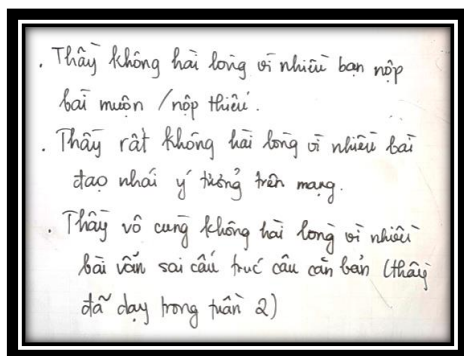 . Thầy không hài lòng vì nhiều bạn nộp
bài muộn / nộp thiếu.
. Thầy rất không hài lòng vì nhiều bài
đạo nhái ý tưởng trên mạng.
. Thầy vô cùng không hài lòng vì nhiều
bài văn sai cấu trúc câu căn bản (thầy
đã dạy trong tuần 2)